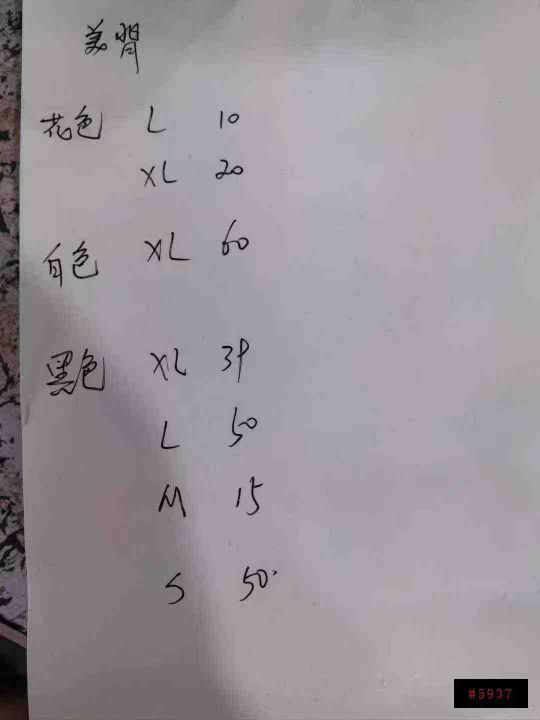 美背
花色 L 10
XL 20
白色 XL 60
黑色 XL 39
L 50
M 15
S 50
#5937